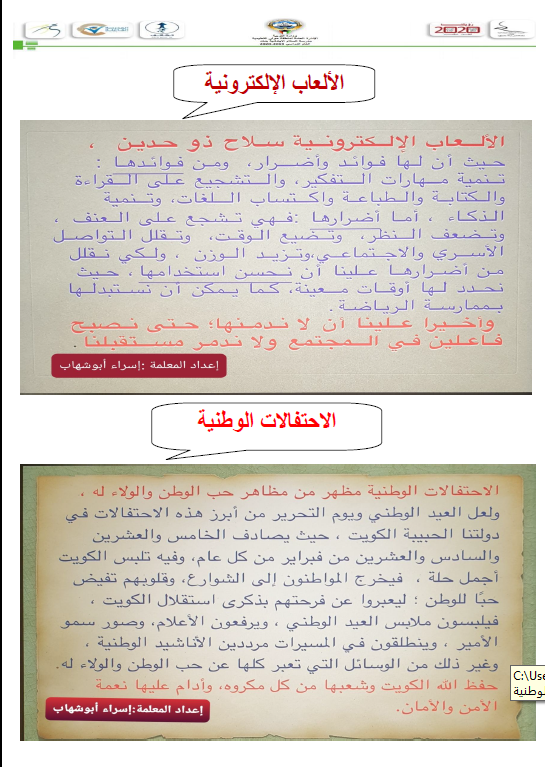 2020
الألعاب الإلكترونية
الألعاب الإلكترونية سلاح ذو حدين ،
حيث أن لها فوائد وأضرار، ومن فوائدها :
تنمية مهارات التفكير، والتشجيع على القراءة
والكتابة والطباعة واكتساب اللغات، وتنمية
الذكاء ، أما أضرارها :فهي تشجع على العنف ،
وتضعف النظر، وتضيع الوقت، وتقلل التواصل
الأسري والاجتماعي،وتزيد الوزن ، ولكي نقلل
من أضرارها علينا أن نحسن استخدامها ، حيث
نحدد لها أوقات معينة، كما يمكن أن نستبدلها
بممارسة الرياضة.
وأخيرا علينا أن لا ندمنها؛ حتى نصبح
فاعلين في المجتمع ولا ندمر مستقبلنا.
إعداد المعلمة :إسراء أبوشهاب
الاحتفالات الوطنية
الاحتفالات الوطنية مظهر من مظاهر حب الوطن والولاء له ،
ولعل العيد الوطني ويوم التحرير من أبرز هذه الاحتفالات في
دولتنا الحبيبة الكويت ، حيث يصادف الخامس والعشرين
والسادس والعشرين من فبراير من كل عام، وفيه تلبس الكويت
أجمل حلة ، فيخرج المواطنون إلى الشوارع، وقلوبهم تفيض
حبًا للوطن ؛ ليعبروا عن فرحتهم بذكرى استقلال الكويت ،
فيلبسون ملابس العيد الوطني ، ويرفعون الأعلام، وصور سمو
الأمير ، وينطلقون في المسيرات مرددين الأناشيد الوطنية ،
وغير ذلك من الوسائل التي تعبر كلها عن حب الوطن والولاء له.
حفظ الله الكويت وشعبها من كل مكروه، وأدام عليها نعمة
الأمن والأمان.
إعداد المعلمة:إسراء أبوشهاب
C:\Use
وطنية